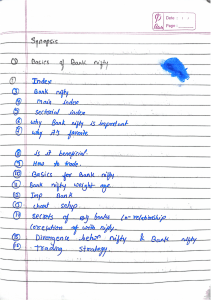 Date :
Page :
Synopsis
Basics of Bank nifty
① Index
③ Bank nifty
④ Main index
⑤ sectorial index
⑥ why Bank nifty is important
⑦ why it's favorite
⑧ is it beneficial
⑨ How to trade.
⑩ Basics for Bank nifty
⑪ Bank nifty weight age
⑫ Imp Bank
⑬ chart setup
⑭ secrets of banks relationship
correction of with nifty.
⑮ Divergence betwn nifty & Bank nifty
⑯ Trading strategy.